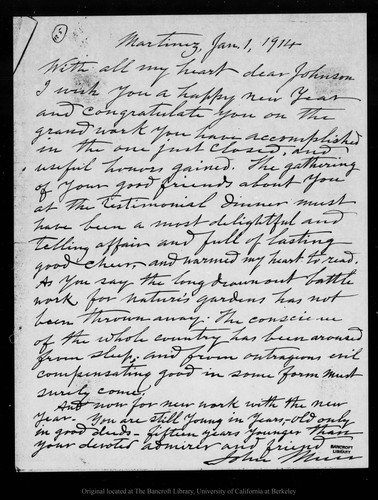 Martinez, Jan. 1, 1914
With all my heart dear Johnson
I wish you a happy new Year
and congratulate you on the
grand work you have accomplished
in the one just closed, and
useful honors gained. The gathering
of your good friends about you
at the testimonial dinner must
have been a most delightful and
telling affair and full of lasting
good cheer, and warmed my heart to read.
As you say the long drawnout battle
work for nature's gardens has not
been thrown away. The conscience
of the whole country has been aroused
from sleep; and from outrageous evil
compensating good in some form must
surely come.
And now for new work with the new
Year. You are still young in years, old only
in good deeds fifteen years younger than
your devoted admirer and friend
John Muir
BANCROFT
LIBRARY
Original located at The Bancroft Library, University of California at Berkeley